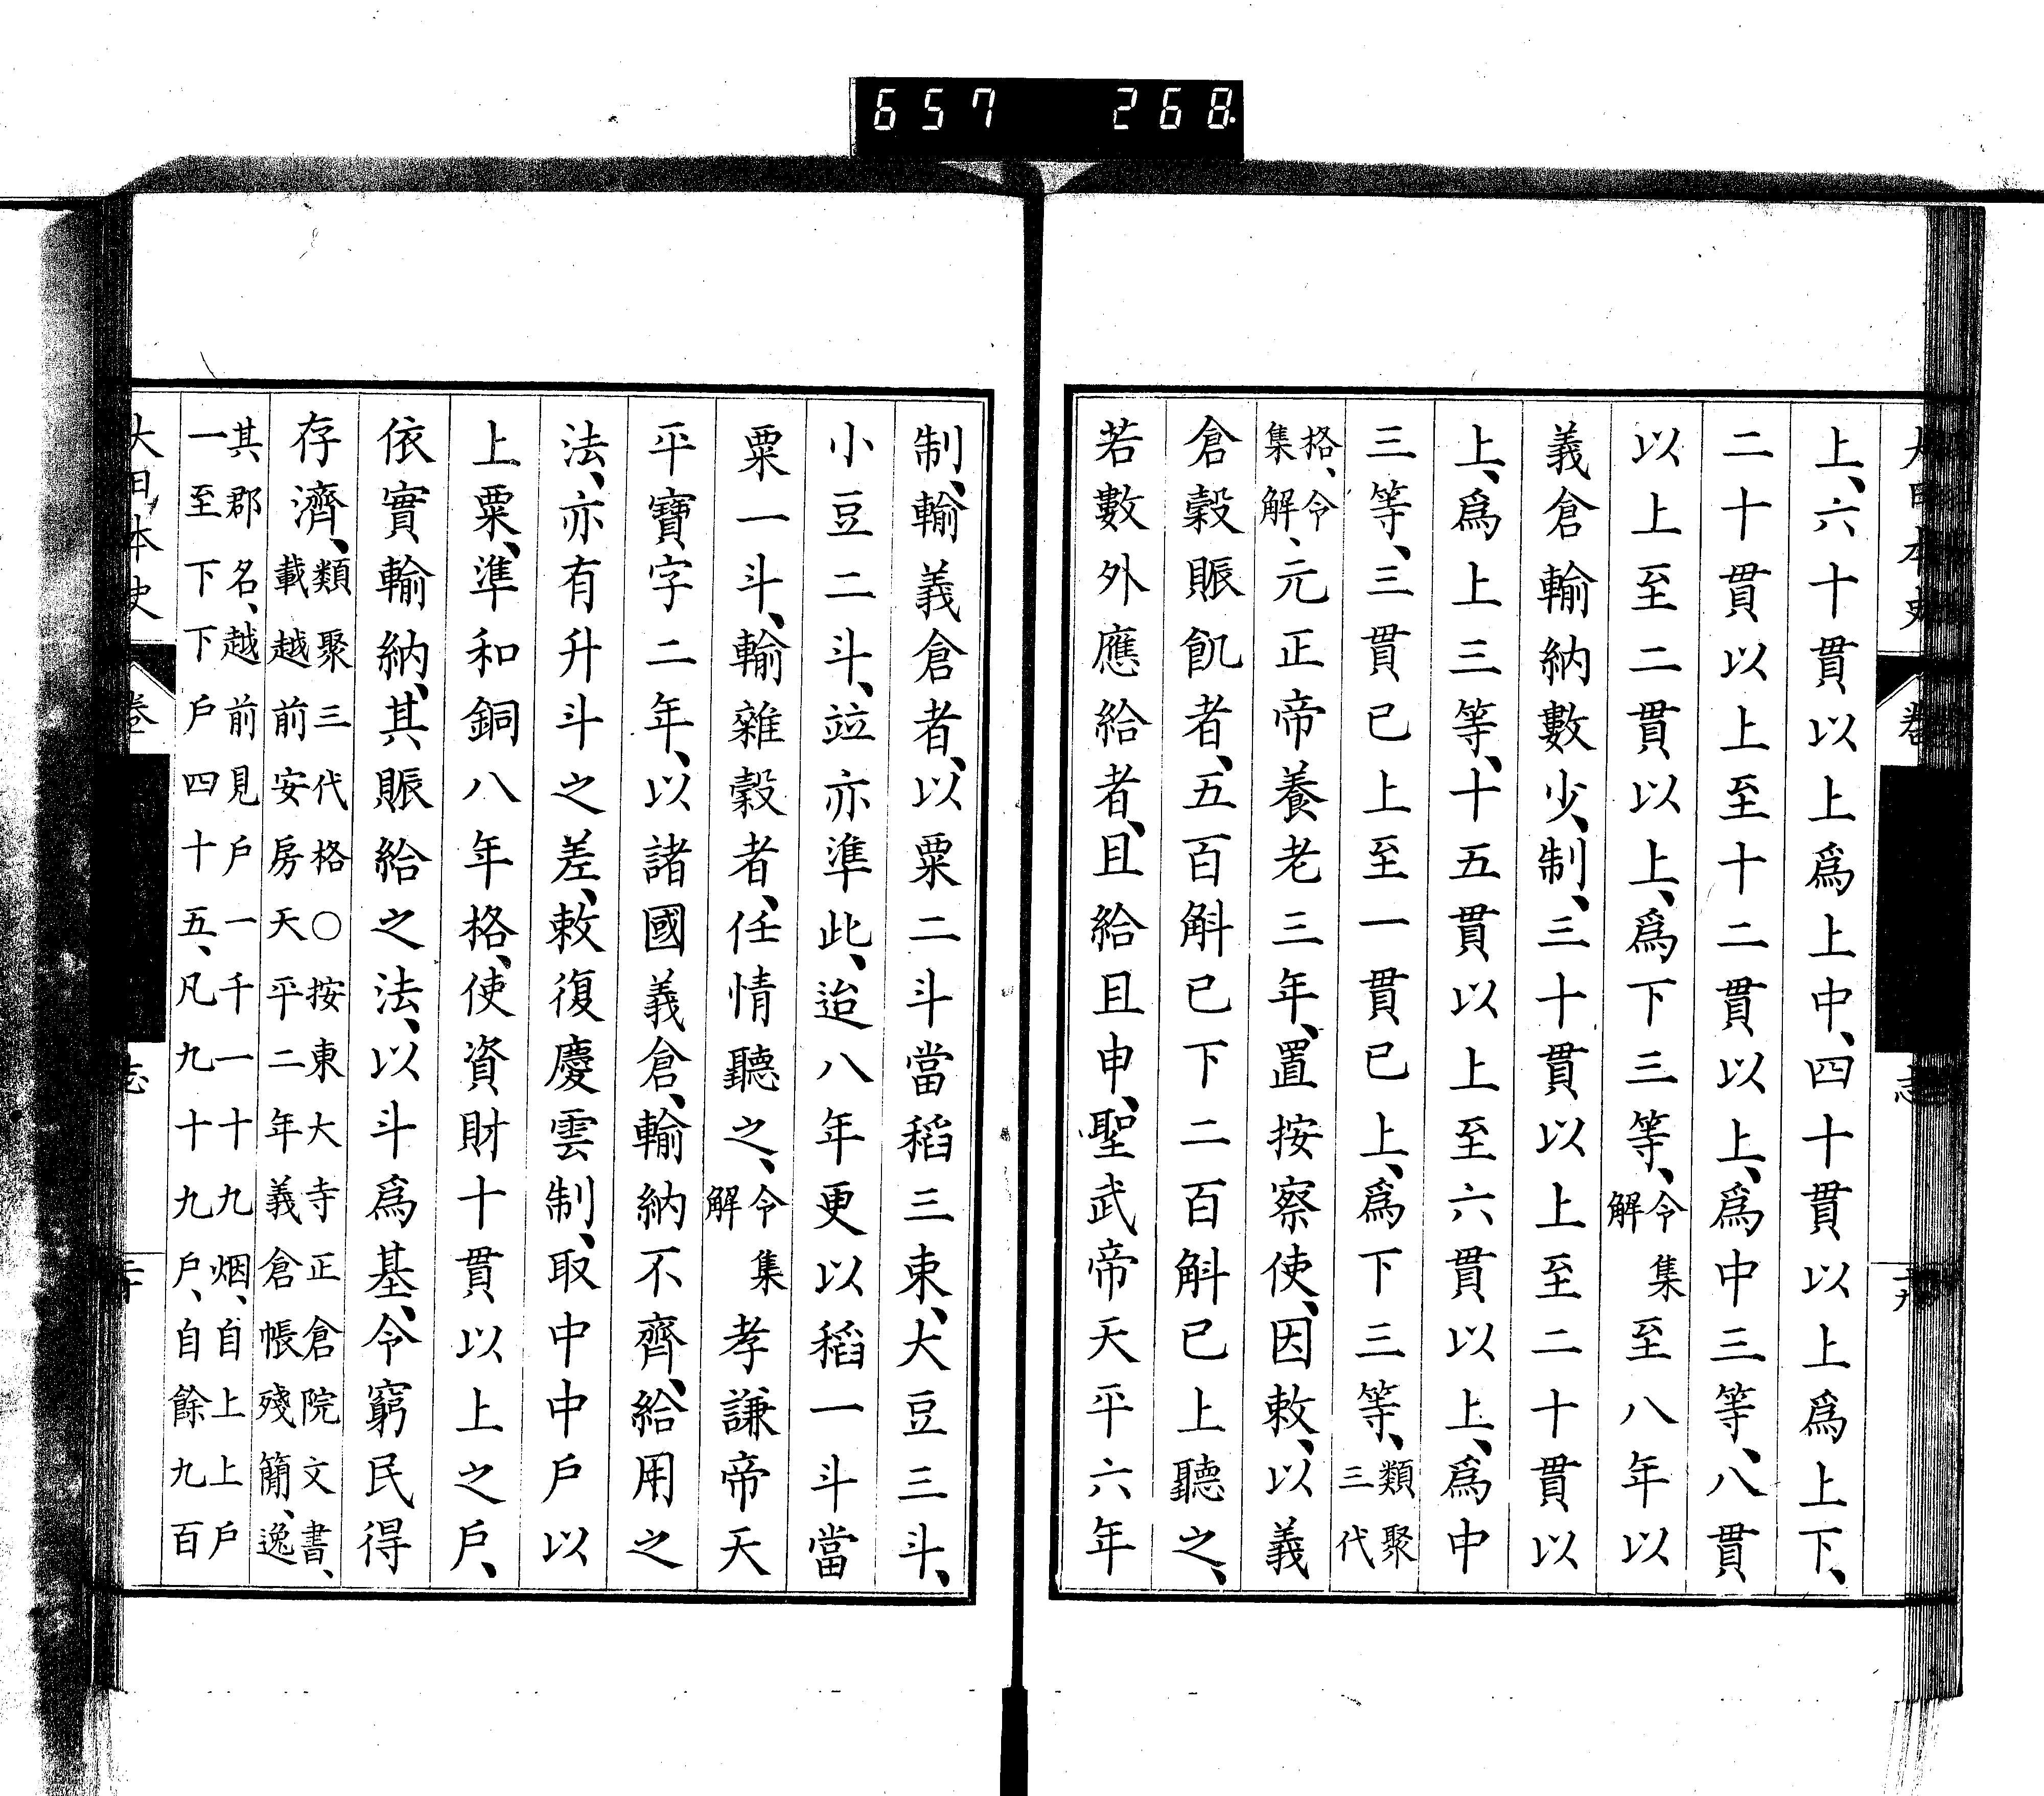 657 268
大日本史 卷 志
上、六十貫以上爲上中、四十貫以上爲上下、
二十貫以上至十二貫以上、爲中三等、八貫
以上至二貫以上、爲下三等、令集解至八年以
義倉輸納數少、制、三十貫以上至二十貫以
上、爲上三等、十五貫以上至六貫以上、爲中
三等、三貫已上至一貫已上、爲下三等、類聚三代
格、令集解、元正帝養老三年、置按察使、因敕、以義
倉穀賑飢者、五百斛已下二百斛已上聽之、
若數外應給者、且給且申、聖武帝天平六年
制、輸義倉者、以粟二斗當稻三束、大豆三斗、
小豆二斗、竝亦準此、迨八年更以稻一斗當
粟一斗、輸雜穀者、任情聽之、令集解孝謙帝天
平寶字二年、以諸國義倉、輸納不齊、給用之
法、亦有升斗之差、敕復慶雲制、取中中戶以
上粟、準和銅八年格、使資財十貫以上之戶、
依實輸納、其賑給之法、以斗爲基、令窮民得
存濟、類聚三代格○按東大寺正倉院文書、載越前安房天平二年義倉帳殘簡、逸
其郡名、越前見戶一千一十九烟、自上上戶一至下下戶四十五、凡九十九戶、自餘九百
大日本史 卷 志 二十